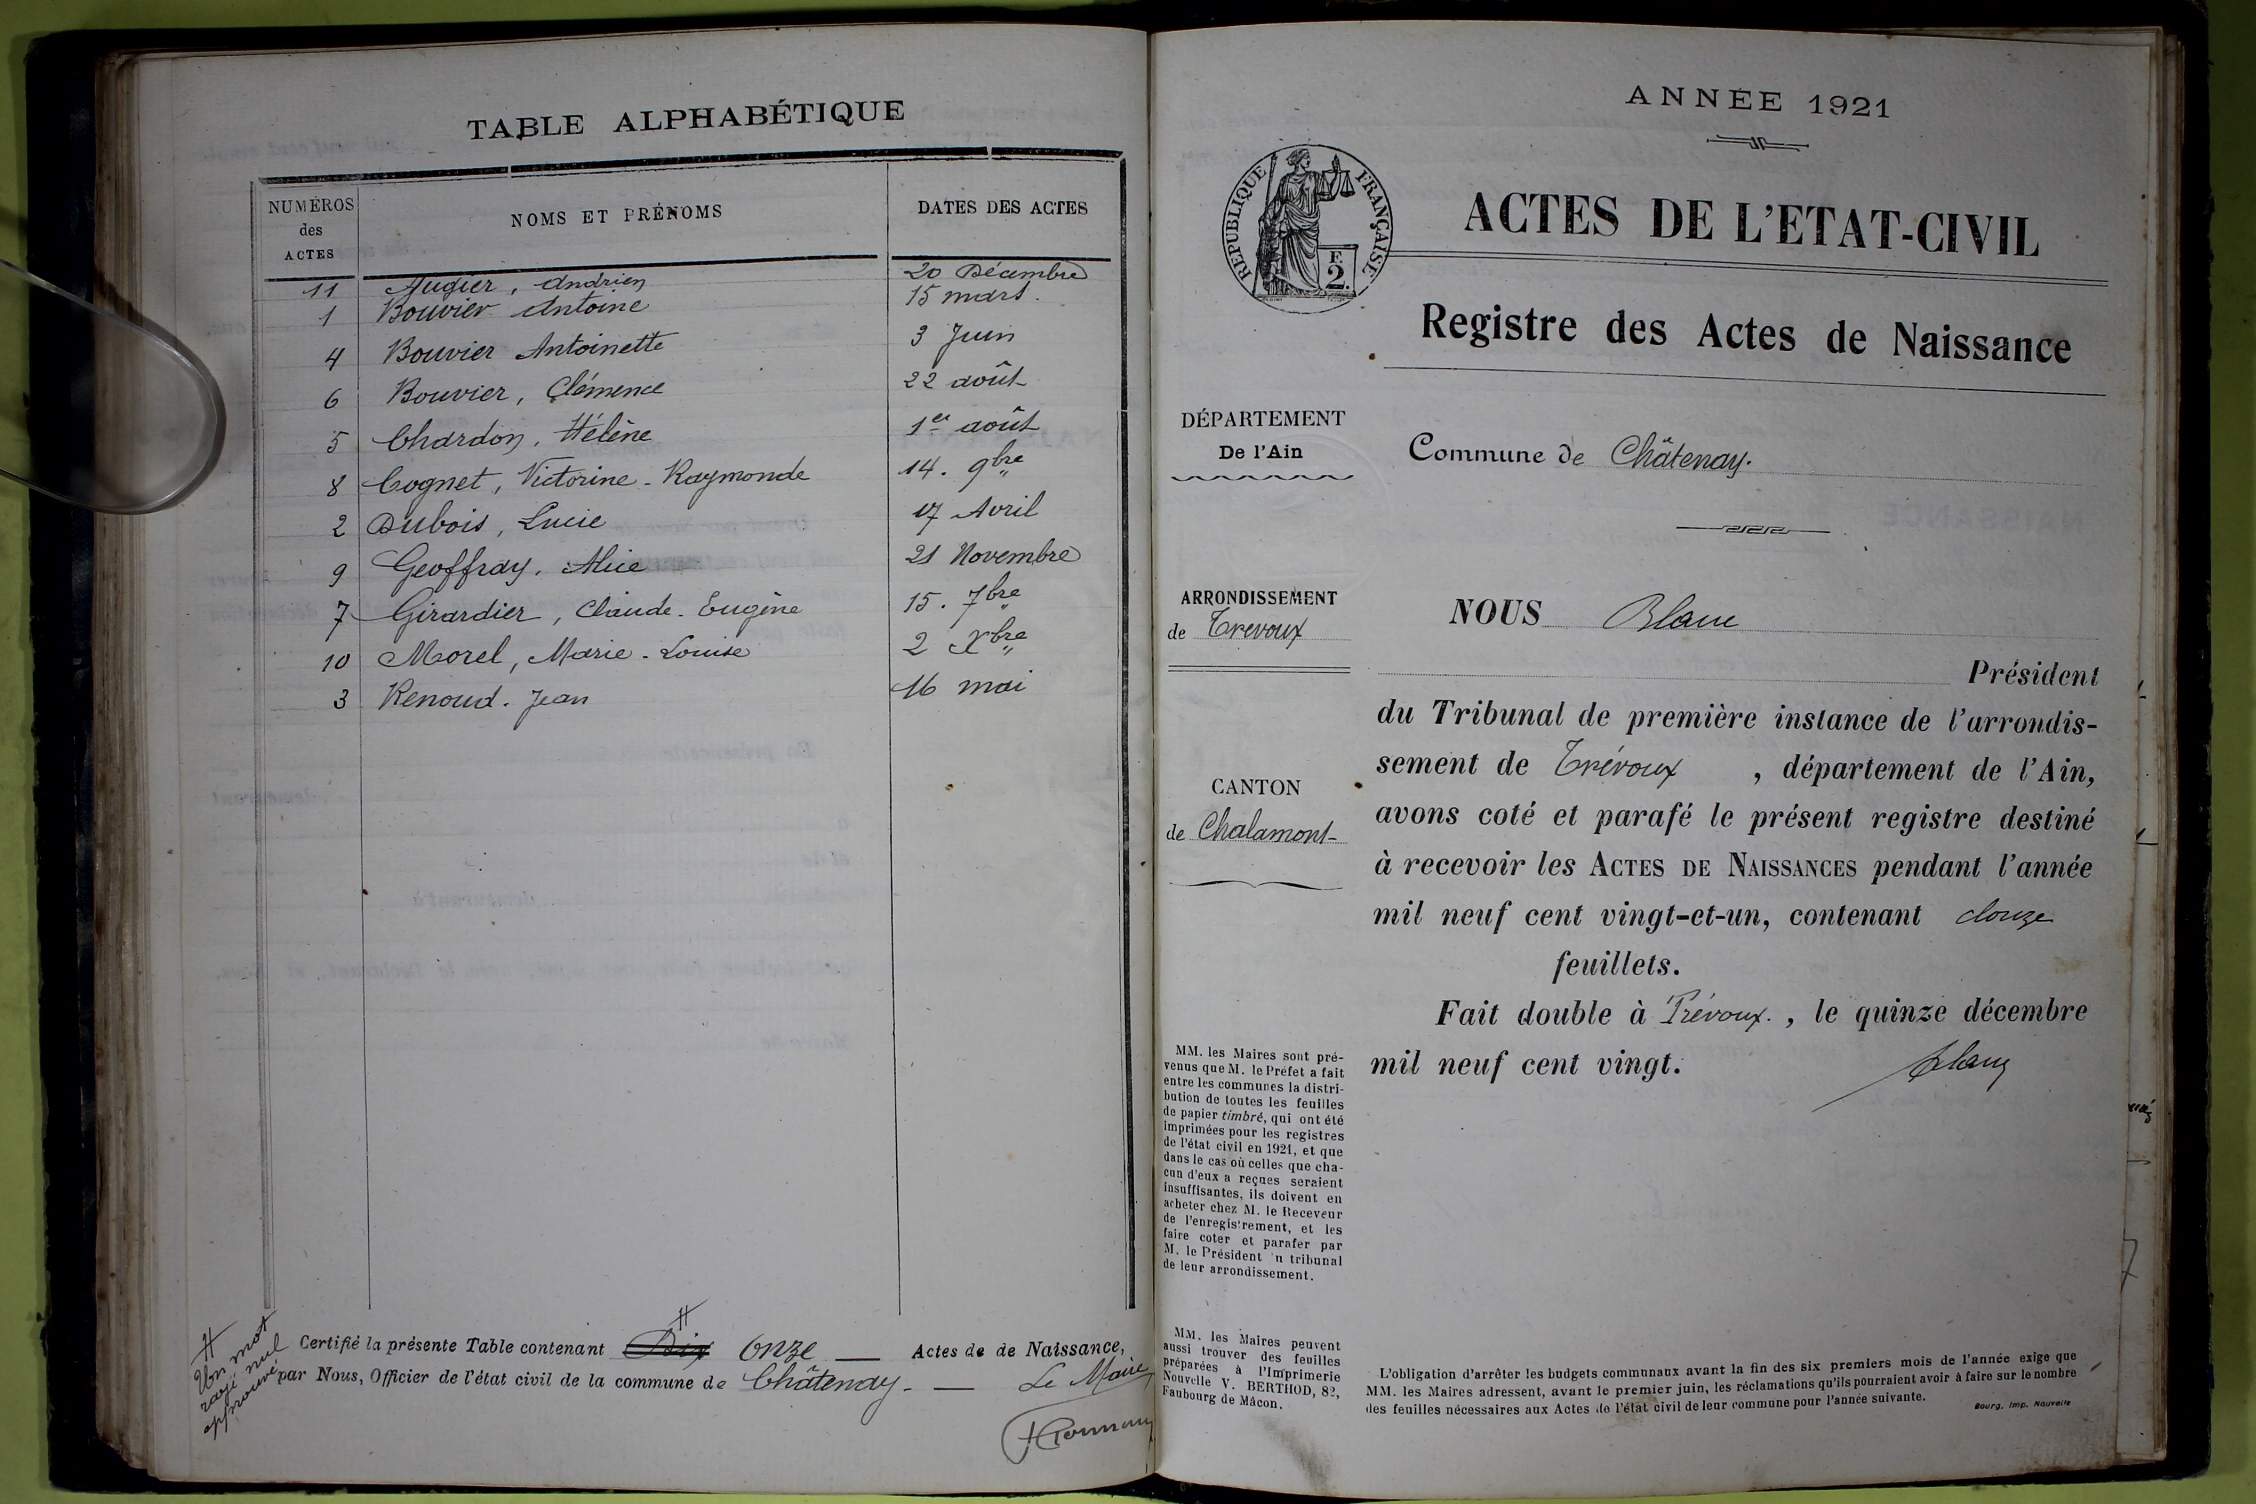 TABLE ALPHABÉTIQUE
NUMÉROS des ACTES NOMS ET PRÉNOMS DATES DES ACTES
11 Augier, Andrien 20 Décembre
1 Bouvier Antoine 15 mars.
4 Bouvier Antoinette 3 Juin
6 Bouvier, Clémence 22 août
5 Chardon, Hélène 1er août
8 Cognet, Victorine - Raymonde 14. 9bre
2 Dubois, Lucie 17 Avril
9 Geoffray, Alice 21 Novembre
7 Girardier, Claude - Eugène 15. 7bre
10 Morel, Marie - Louise 2 Xbre
3 Renoud. Jean 16 mai
Certifié la présente Table contenant Dix onze — Actes de de Naissance,
par Nous, Officier de l'état civil de la commune de Châtenay. — Le Maire
Un mot
rayé nul
approuvé
ANNÉE 1921
RÉPUBLIQUE FRANÇAISE
E
2.
ACTES DE L'ETAT-CIVIL
Registre des Actes de Naissance
DÉPARTEMENT
De l'Ain
Commune de Châtenay.
ARRONDISSEMENT
de Trevoux
CANTON
de Chalamont
NOUS Blanc
Président
du Tribunal de première instance de l'arrondis-
sement de Trévoux , département de l'Ain,
avons coté et parafé le présent registre destiné
à recevoir les ACTES DE NAISSANCES pendant l'année
mil neuf cent vingt-et-un, contenant douze
feuillets.
Fait double à Trévoux. , le quinze décembre
mil neuf cent vingt.
Blanc
MM. les Maires sont pré-
venus que M. le Préfet a fait
entre les communes la distri-
bution de toutes les feuilles
de papier timbré, qui ont été
imprimées pour les registres
de l'état civil en 1921, et que
dans le cas où celles que cha-
cun d'eux a reçues seraient
insuffisantes, ils doivent en
acheter chez M. le Receveur
de l'enregistrement, et les
faire coter et parafer par
M. le Président n tribunal
de leur arrondissement.
MM. les Maires peuvent
aussi trouver des feuilles
préparées à l'Imprimerie
Nouvelle V. BERTHOD, 82,
Faubourg de Mâcon.
L'obligation d'arrêter les budgets communaux avant la fin des six premiers mois de l'année exige que
MM. les Maires adressent, avant le premier juin, les réclamations qu'ils pourraient avoir à faire sur le nombre
des feuilles nécessaires aux Actes de l'état civil de leur commune pour l'année suivante.
Bourg, Imp. Nouvelle